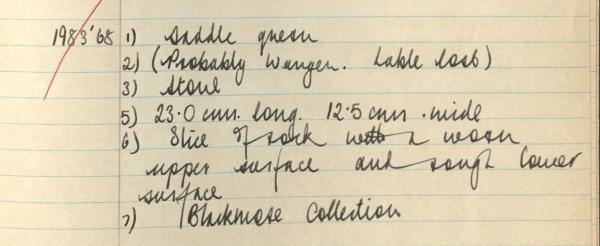 1983'68 1) Saddle quern
2) (Probably Wangen. Lable lost)
3) Stone
5) 23.0 cms. long. 12.5 cms. wide
6) Slice of rock with a worn
upper surface and rough lower
surface
7) Blackmore Collection